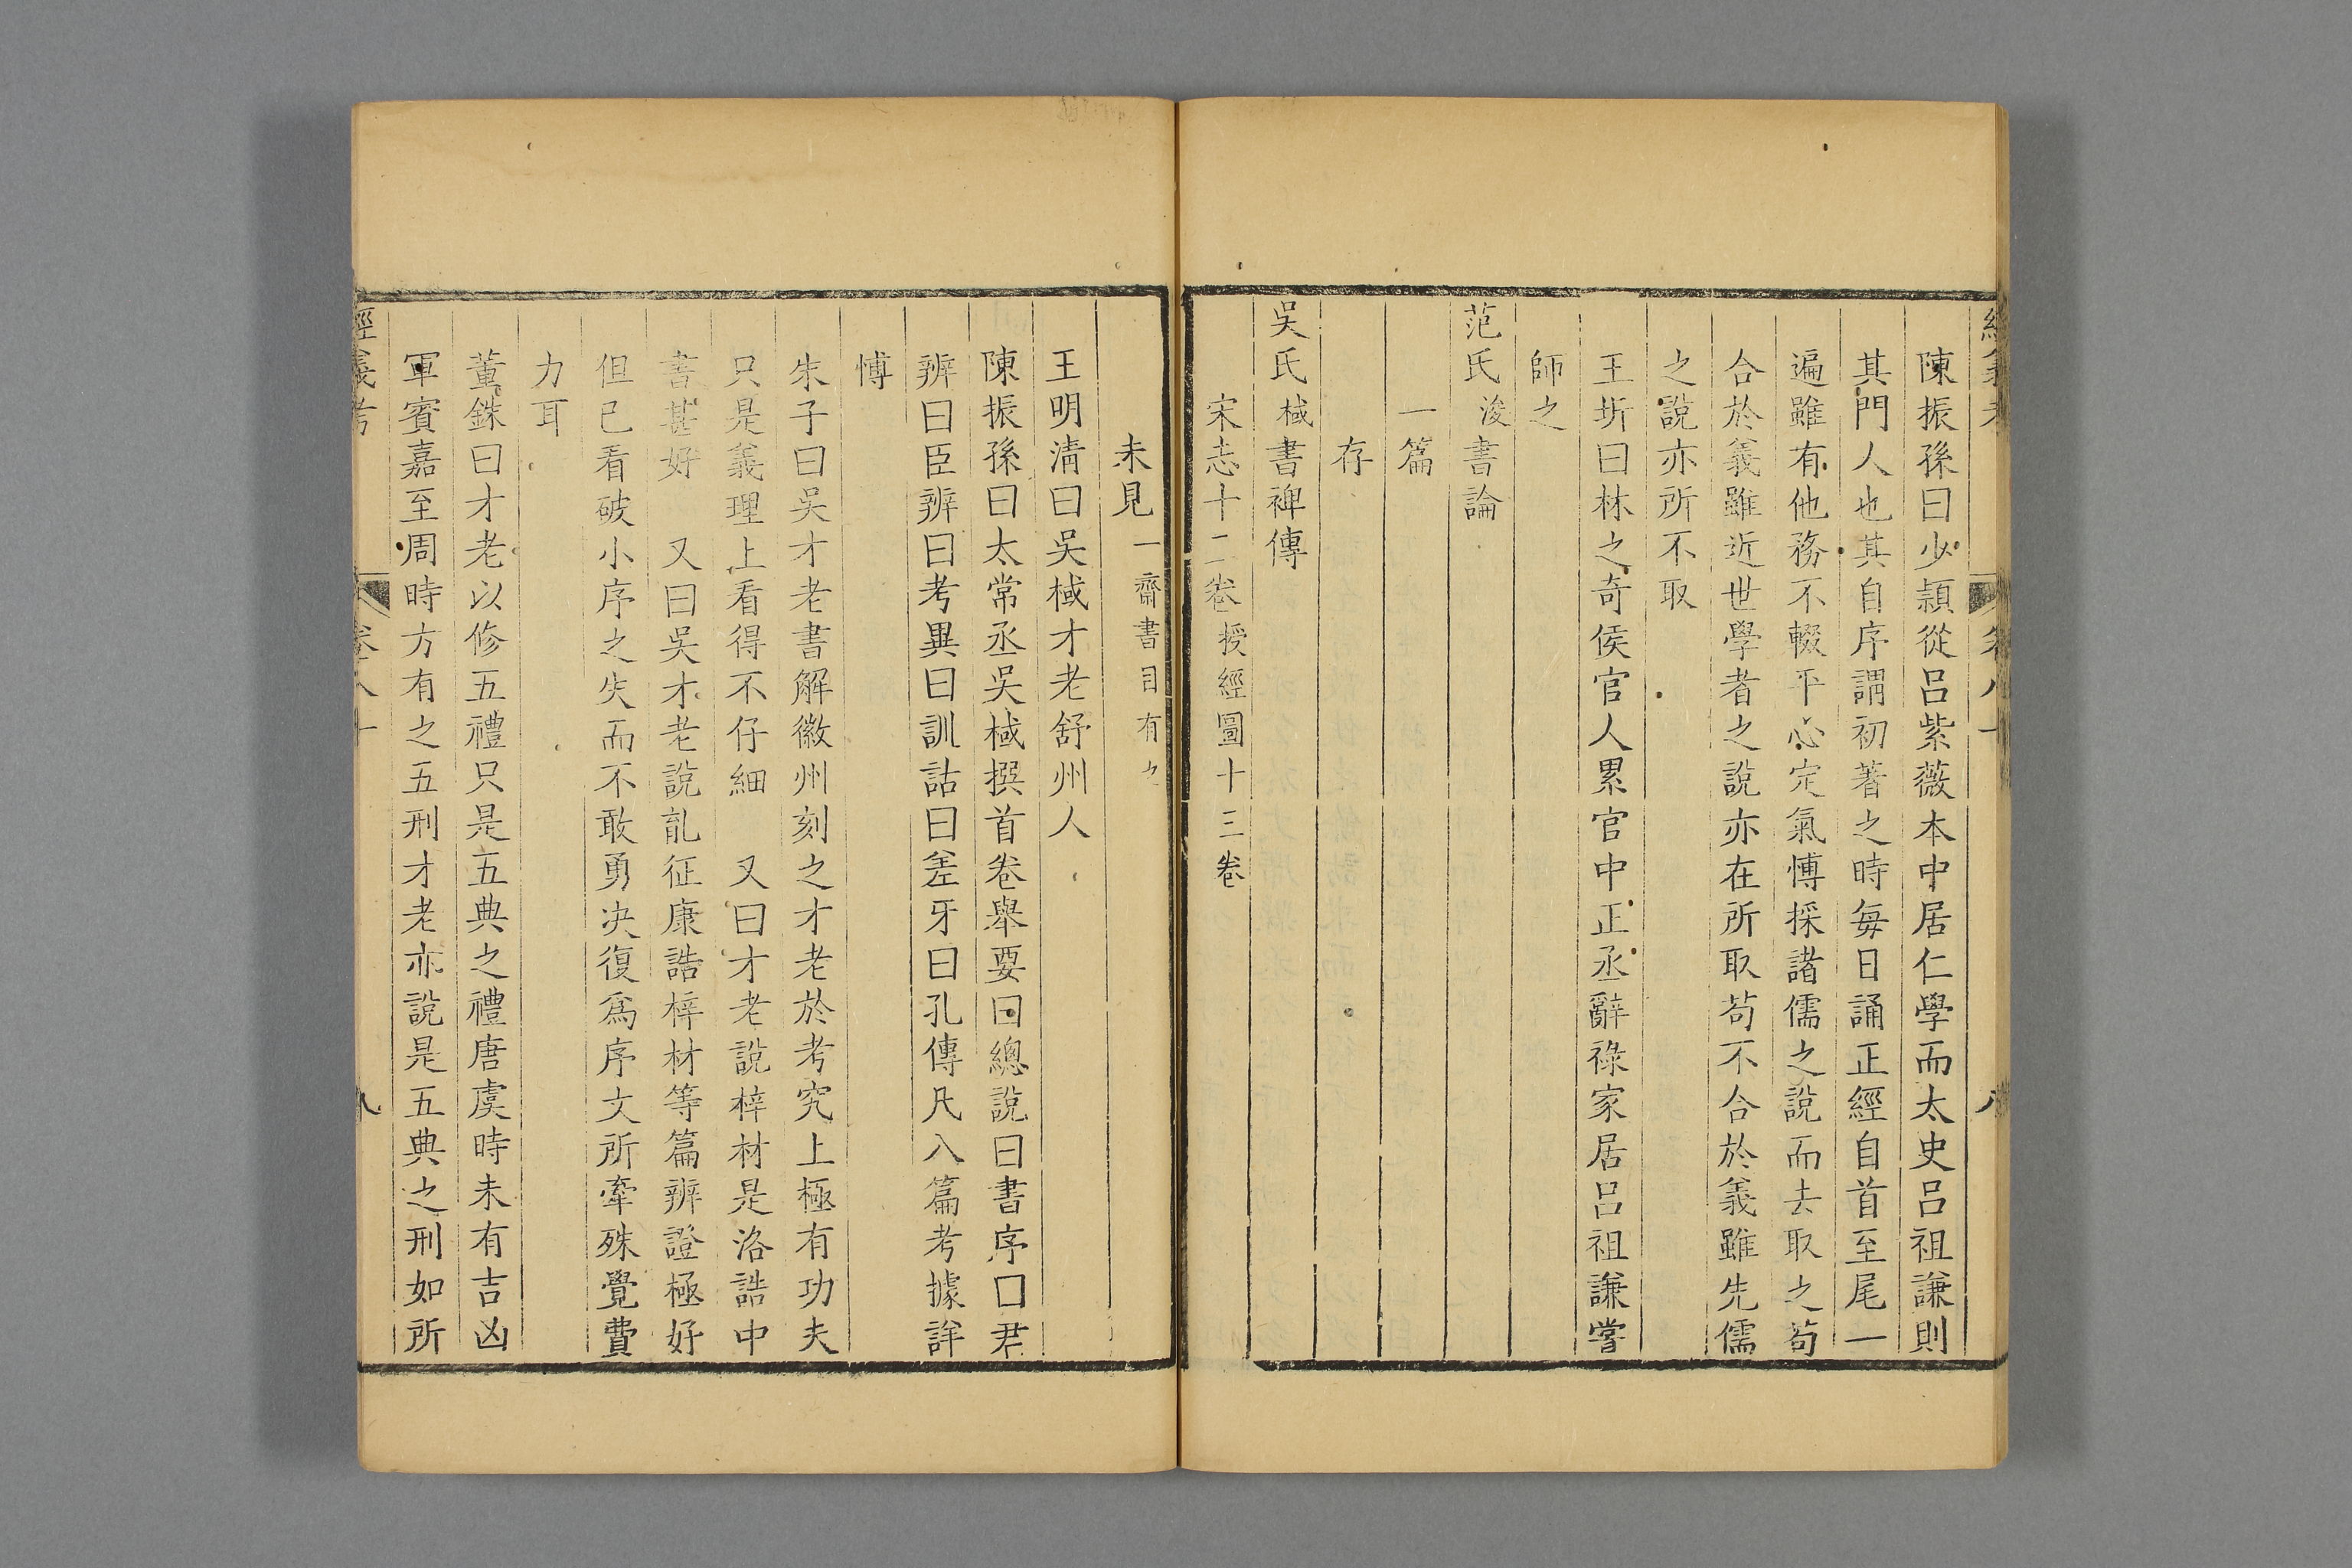 陳振孫曰少頴從呂紫薇本中居仁學而太史呂祖謙則
其門人也其自序謂初著之時每日誦正經自首至尾一
遍雖有他務不輟平心定氣愽採諸儒之說而去取之茍
合於義雖近世學者之說亦在所取茍不合於義雖先儒
之說亦所不取
王圻曰林之奇侯官人累官中正丞辭祿家居呂祖謙嘗
師之
范氏浚書論
一篇
存
吳氏棫書裨傳
宋志十二卷授經圖十三卷
未見一齋書目有之
王明淸曰吳棫才老舒州人
陳振孫曰太常丞吳棫撰首卷舉要曰總說曰書序囗君
辨曰臣辨曰考異曰訓詁曰差牙曰孔傳凡八篇考據詳
愽
朱子曰吳才老書解徽州刻之才老於考究上極有功夫
只是義理上看得不仔細　又曰才老說梓材是洛誥中
書甚好　又曰吳才老說胤征康誥梓材等篇辨證極好
但已看破小序之失而不敢勇决復爲序文所牽殊覺費
力耳
董銖曰才老以修五禮只是五典之禮唐虞時未有吉凶
軍賓嘉至周時方有之五刑才老亦說是五典之刑如所
經義考　卷八十　八